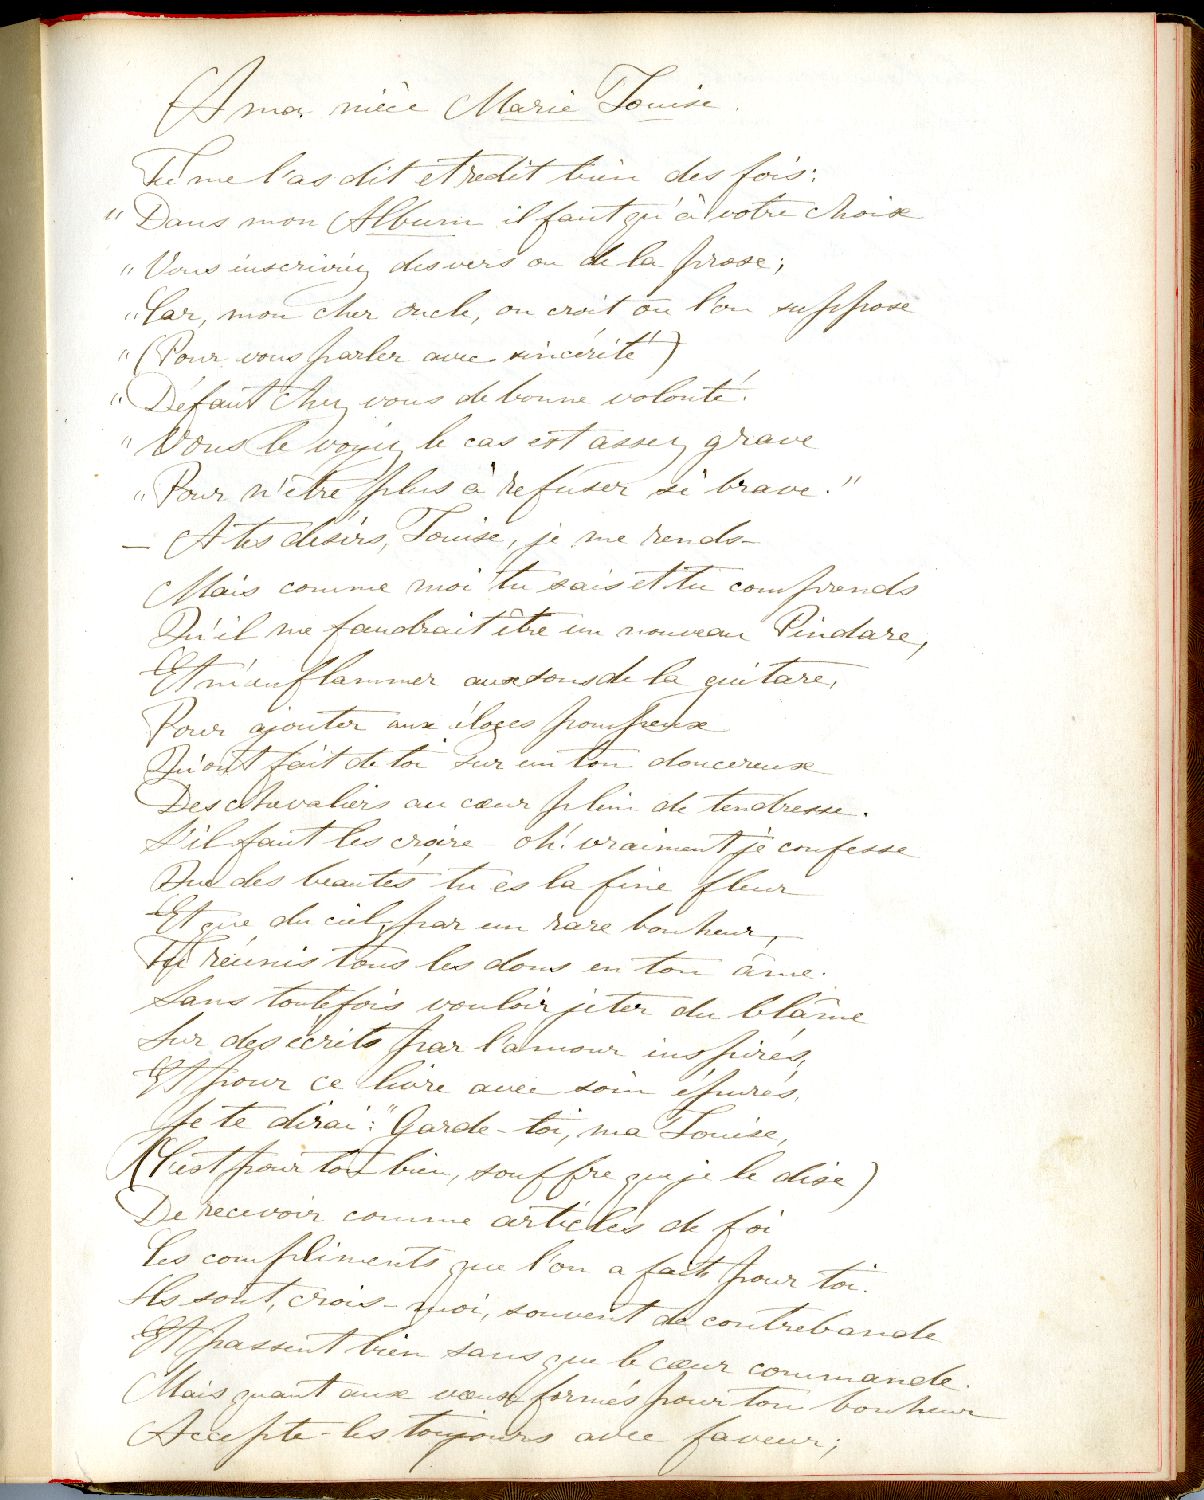 A ma nièce Marie Louise.
Tu me l'as dit et redit bien des fois:
"Dans mon Album il faut qu'à votre choix
"Vous inscriviez des vers ou de la prose;
"Car, mon cher oncle, on croit ou l'on suppose
"(Pour vous parler avec sincérité)
"Défaut chez vous de bonne volonté.
"Vous le voyez, le cas est assez grave
"Pour n'être plus à refuser si brave."
— A tes désirs, Louise, je me rends —
Mais comme moi tu sais et tu comprends
Qu'il me faudrait être un nouveau Pindare,
Et m'enflammer aux sons de la guitare,
Pour ajouter aux éloges pompeux
Qu'ont fait de toi sur un ton doucereux
Des chevaliers au cœur plein de tendresse.
S'il faut les croire - oh! vraiment je confesse
Que des beautés tu es la fine fleur
Et que du ciel, par un rare bonheur,
Tu réunis tous les dons en ton âme.
Sans toutefois vouloir jeter du blâme
Sur des écrits par l'amour inspirés,
Et pour ce livre avec soin épurés,
Je te dirai: "Garde-toi, ma Louise,
(C'est pour ton bien, souffre que je le dise)
De recevoir comme articles de foi
Les compliments que l'on a faits pour toi.
Ils sont, crois-moi, souvent de contrebande
Et passent bien sans que le cœur commande.
Mais quant aux vœux formés pour ton bonheur
Accepte-les toujours avec faveur;